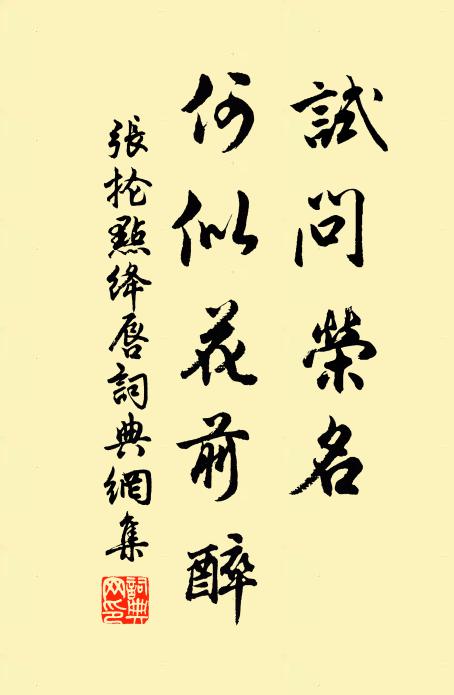 試問榮名
何似花前醉
張掄點絳唇詞典網集
詞典網印